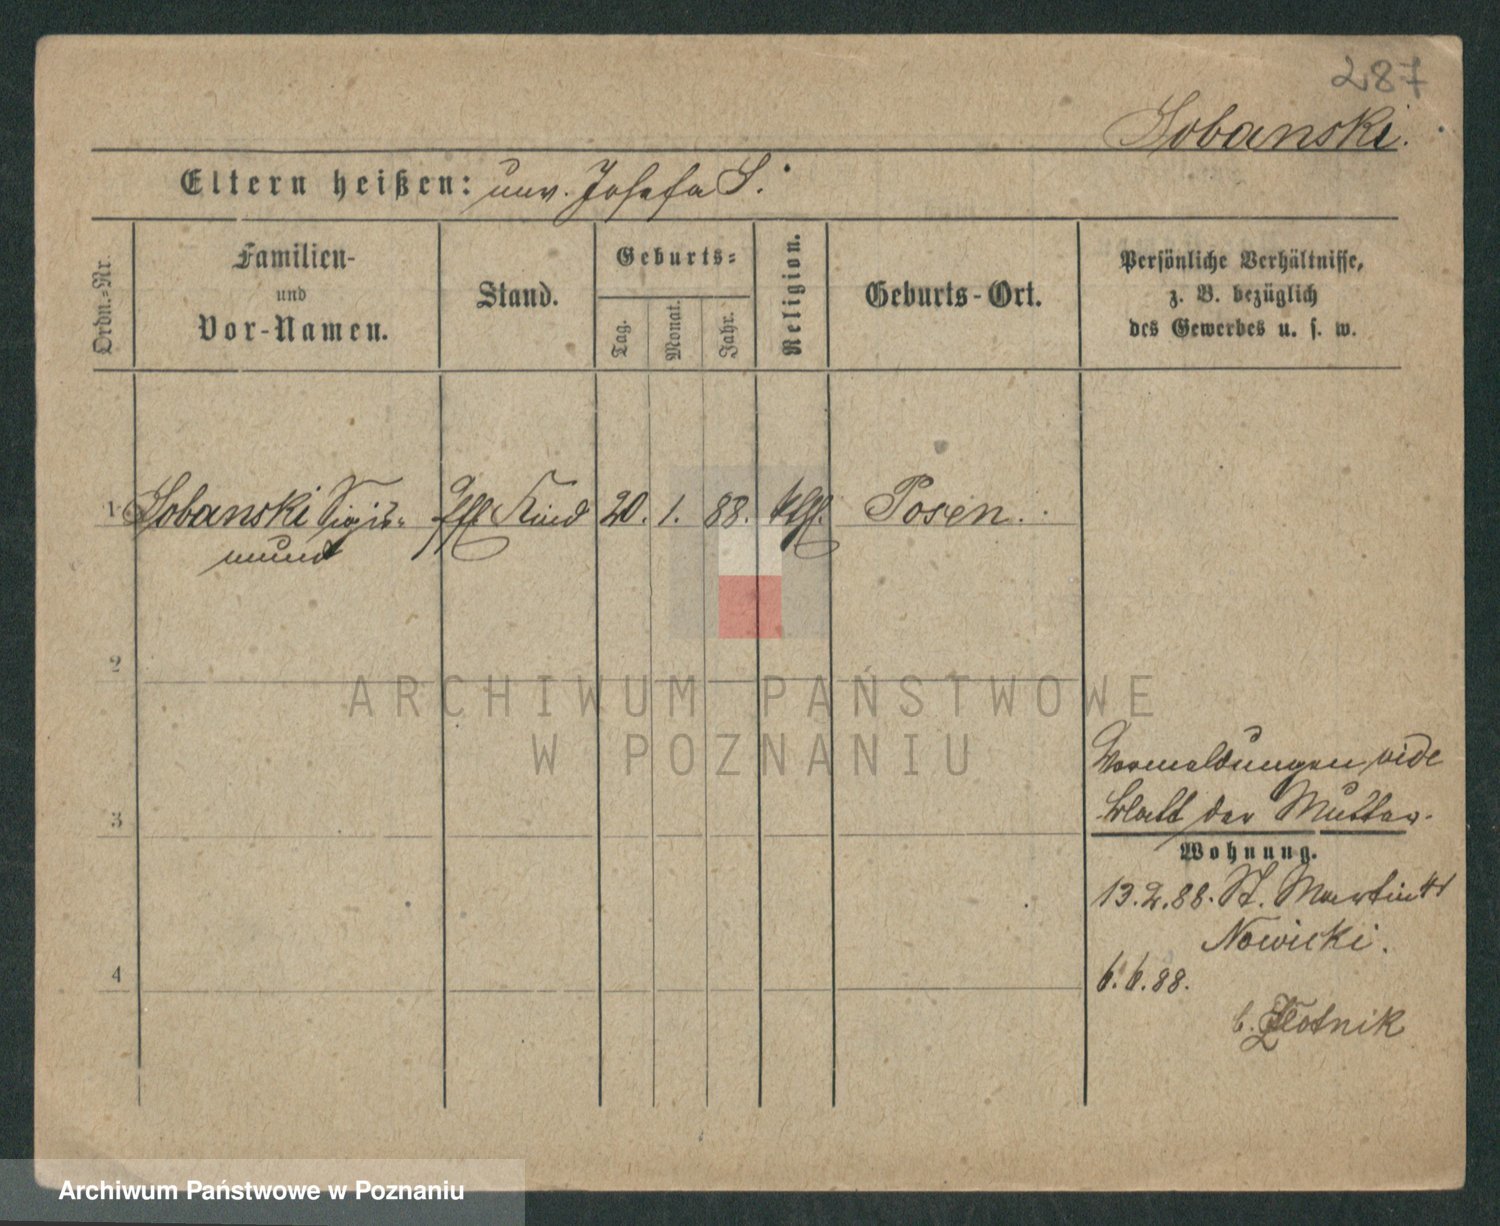 287
Lobanski.
Eltern heißen: unv. Josefa L.
Ordn.-Nr.
Familien-
und
Vor-Namen.
Stand.
Geburts-
Tag.
Monat.
Jahr.
Religion.
Geburts-Ort.
Persönliche Verhältnisse,
z. B. bezüglich
des Gewerbes u. s. w.
1 Lobanski Sigis- Kind 20. 1. 88. kth. Posen.
mund
2
3
4
ARCHIWUM PAŃSTWOWE
W POZNANIU
Vormeldungen vide
Blatt der Mutter.
Wohnung.
13.2.88. St. Martin 41
Nowicki.
6.6.88.
b. Zlotnik
Archiwum Państwowe w Poznaniu